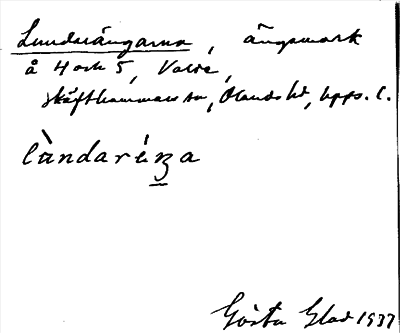 Lundarängarna, ängsmark
å 4 och 5, Valse,
Skäfthammars sn, Olands hd, Upps. l.
làndaréŋa
Gösta Glad 1937